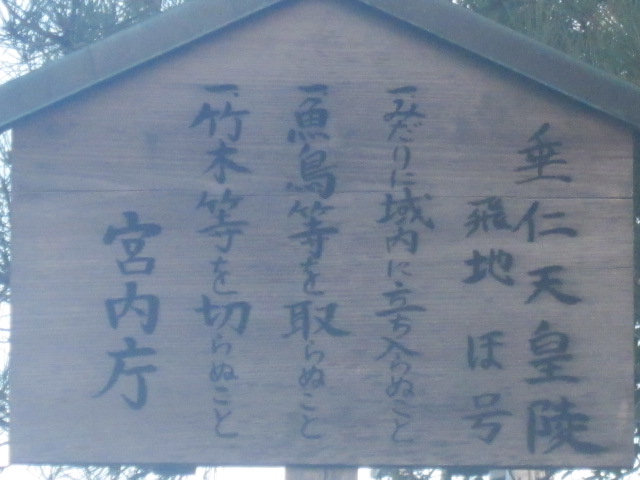 垂仁天皇陵
飛地 ほ号
一、みだりに域内に立ち入らぬこと
一、魚鳥等を取らぬこと
一、竹木等を切らぬこと
宮内庁